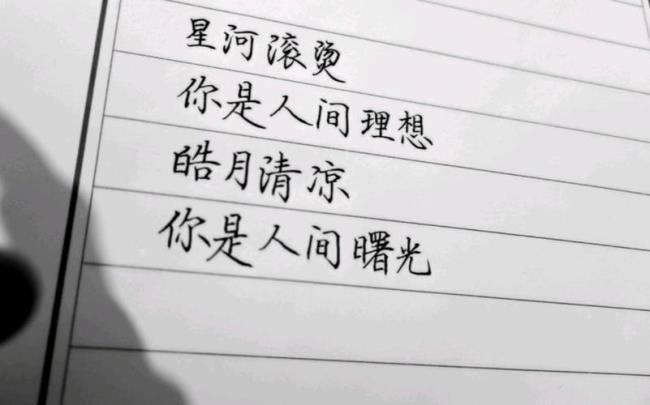 星河滚烫
你是人间理想
皓月清凉
你是人间曙光